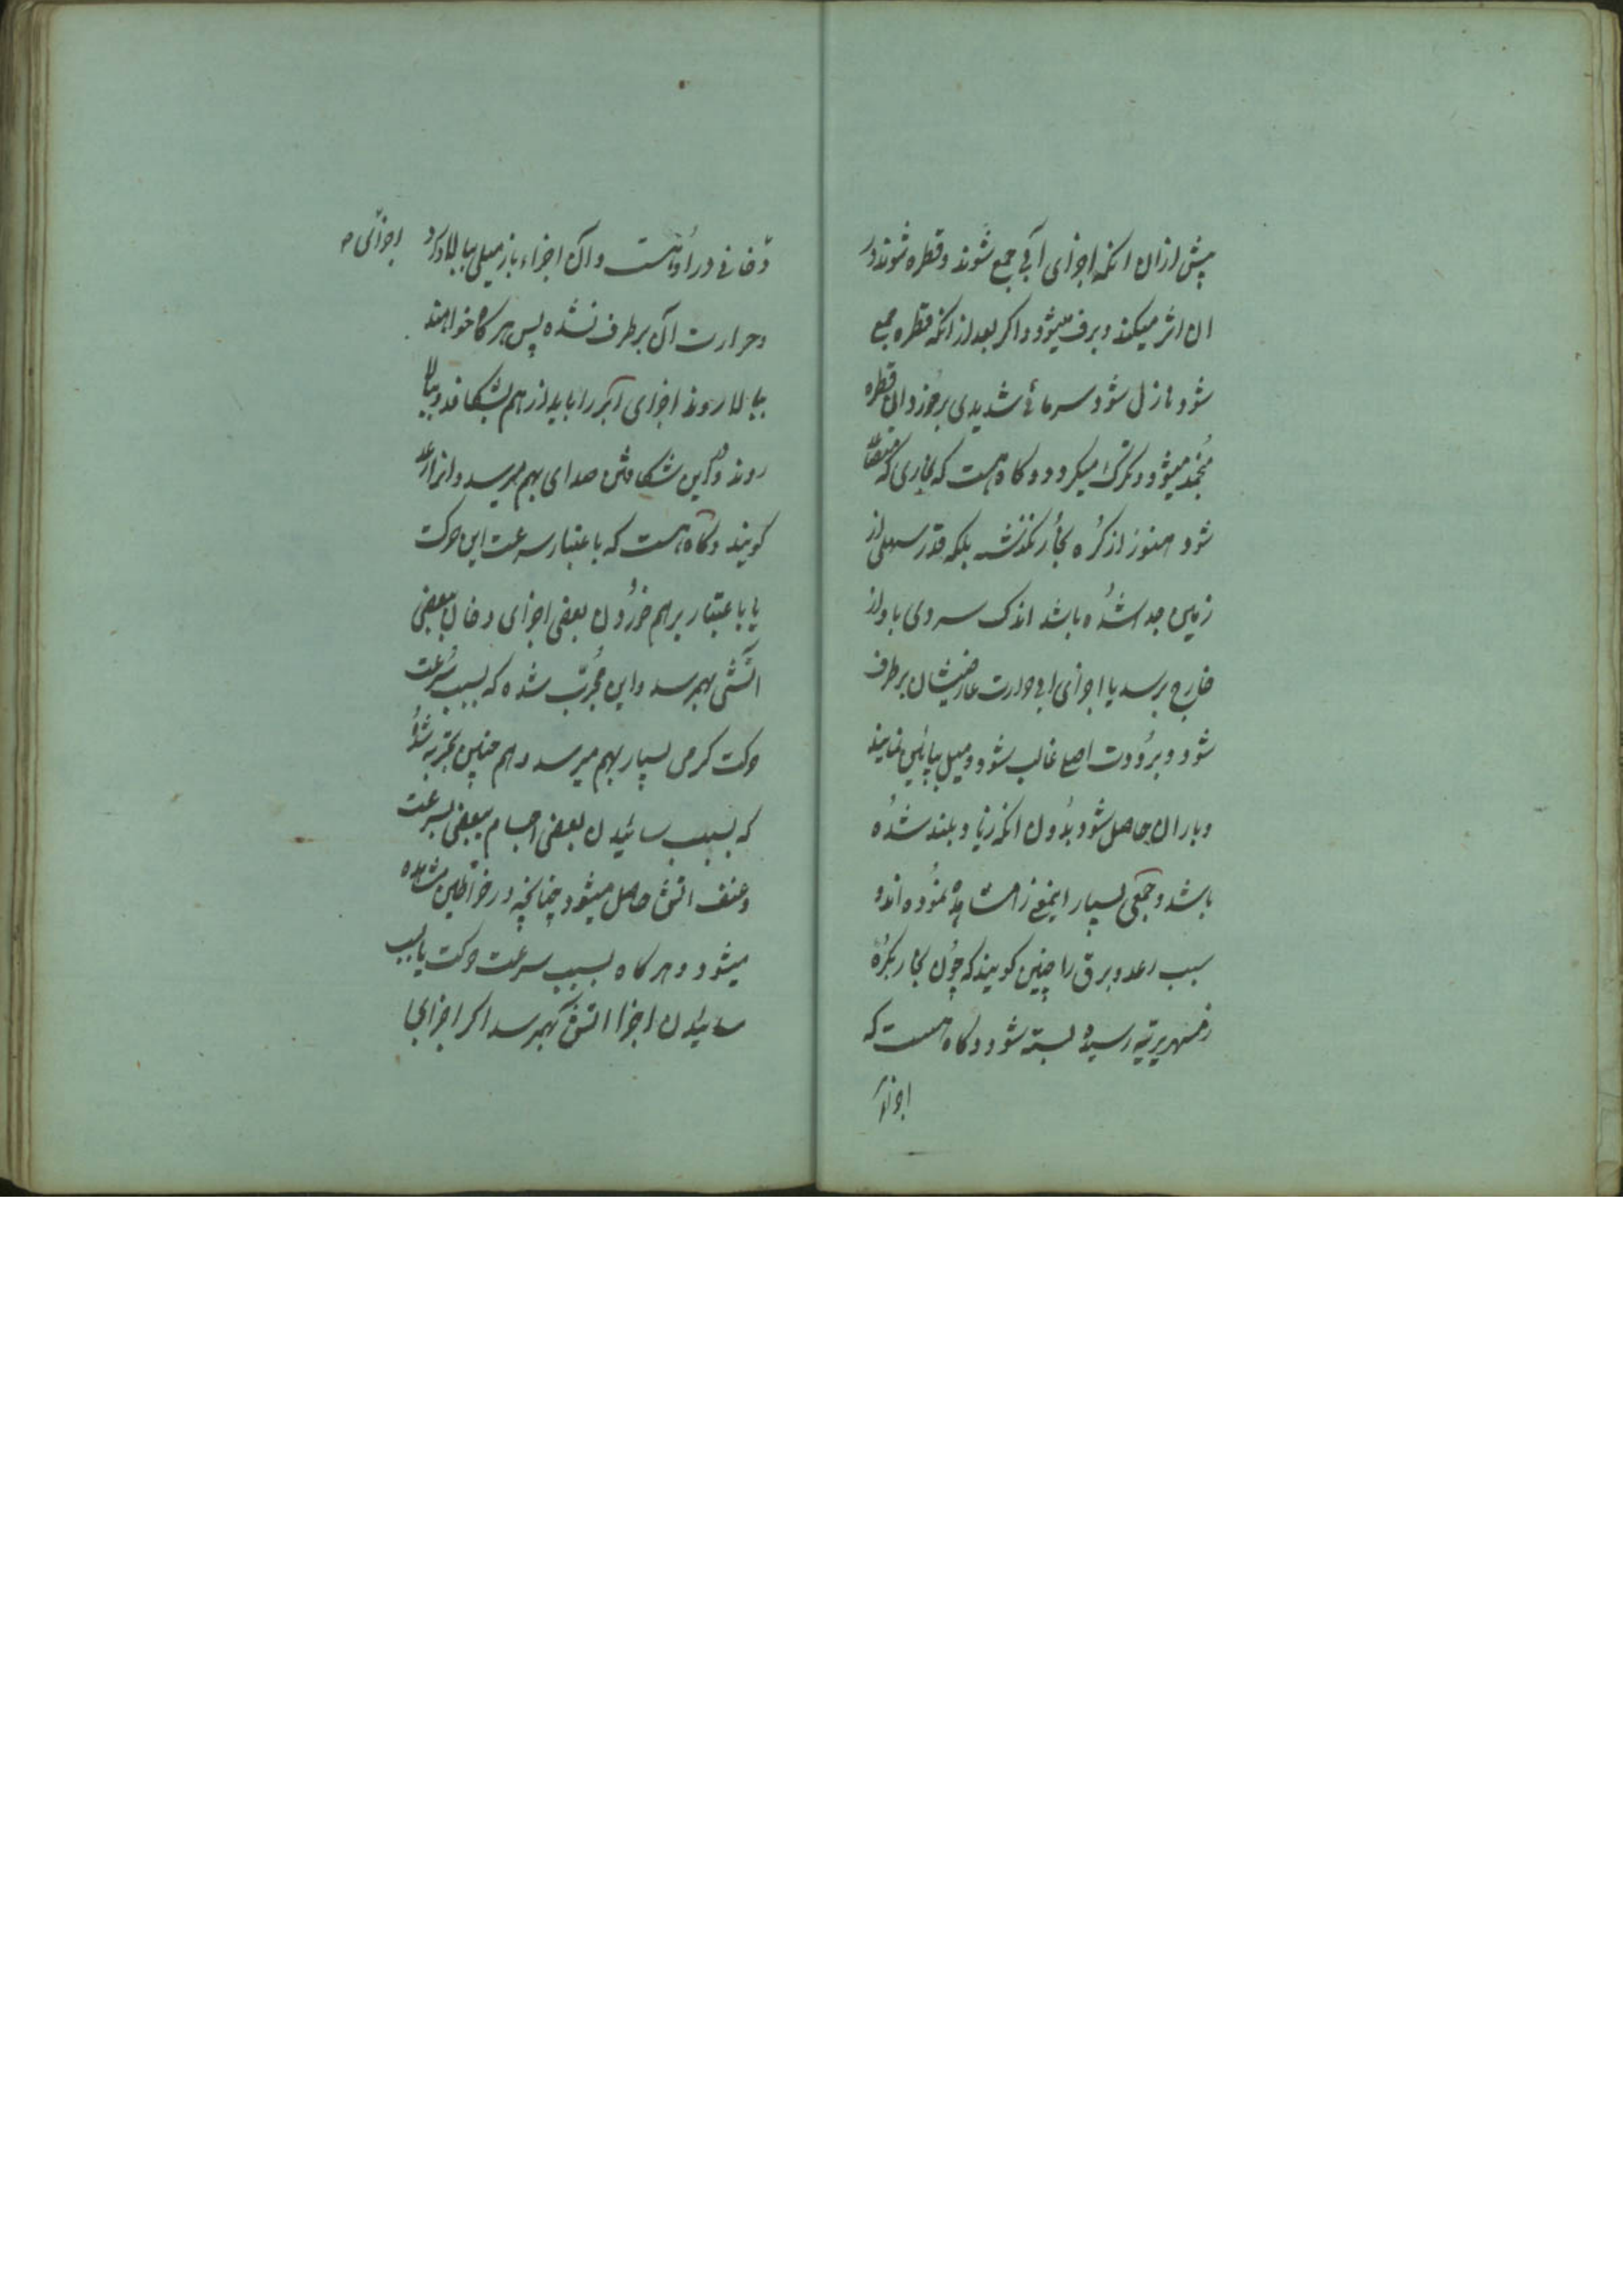 پیش از ان انکه اجزای آبی جمع شوند و قطره شوند در
ان اثر میکند و برف میشود و اکر بعد از انکه قطره جمع
شود نازل شود سرمائ شدیدی برخورد ان قطره
منجمد میشود و تکرک میکردد و کاه هست که بخاری که متصاعد
شود هنوز از کره بخار نکذشته بلکه قدر سهلی از
زمین جدا شده باشد اندک سردی باو از
خارج برسد یا اجزای ابی حرارت عارضیشان برطرف
شود و برودت اصلی غالب شود و میل بپائین نمایند
و باران حاصل شود بدون انکه زیاد بلند شده
باشد و جمعی بسیار اینمعنی را مشاهده نموده اند و
سبب رعد و برق را چنین کویند که چون بخار بکره
زمهریریه رسیده بسته شود و کاه هست که
اجزاء
دخانی در او هست و آن اجزاء باز میلی ببالا دارد
اجزائی
و حرارت آن برطرف نشده پس هر کاه خواهند
ببالا روند اجزای آبر را باید از هم بشکافد و ببالا
روند و از این شکافتن صدای بهم میرسد و انرا رعد
کویند و کاه هست که باعتبار سرعت این حرکت
یا باعتبار برهم خوردن بعضی اجزای دخان ببعضی
اتشی بهمرسد و این مجرب شده که بسبب سرعت
حرکت کرمی بسیار بهم میرسد و هم چنین تجربه شده
که بسبب سائیدن بعضی اجسام ببعضی بسرعت
و عنف اتش حاصل میشود چنانچه در خراطین مشاهده
میشود و هر کاه بسبب سرعت حرکت یا بسبب
سائیدن اجزا اتش بهمرسد اکر اجزای